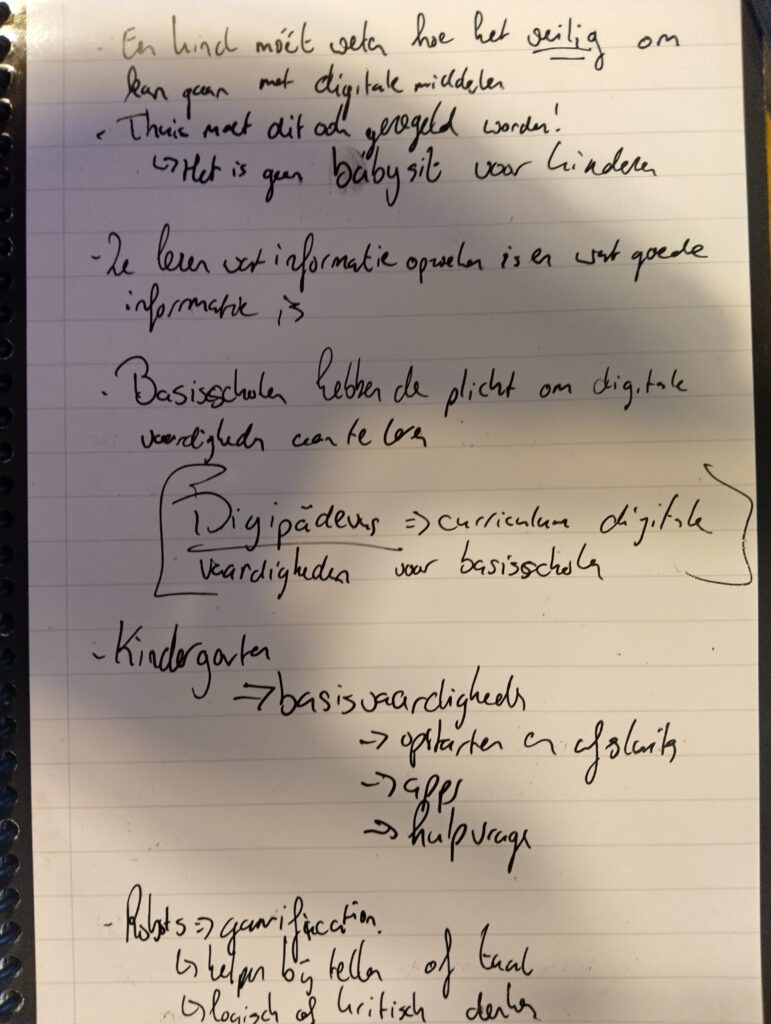 - Een kind móét weten hoe het veilig om
kan gaan met digitale middelen
- Thuis moet dit ook geregeld worden!
↳ Het is geen babysit voor kinderen
- Ze leren wat informatie opzoeken is en wat goede
informatie is
- Basisscholen hebben de plicht om digitale
vaardigheden aan te leren
[Digipädevus => curriculum digitale
vaardigheden voor basisscholen]
- Kindergarten
=> basisvaardigheden
-> opstarten en afsluiten
-> apps
-> hulp vragen
- Robots => gamification.
↳ helpen bij tellen of taal
↳ logisch of kritisch denken